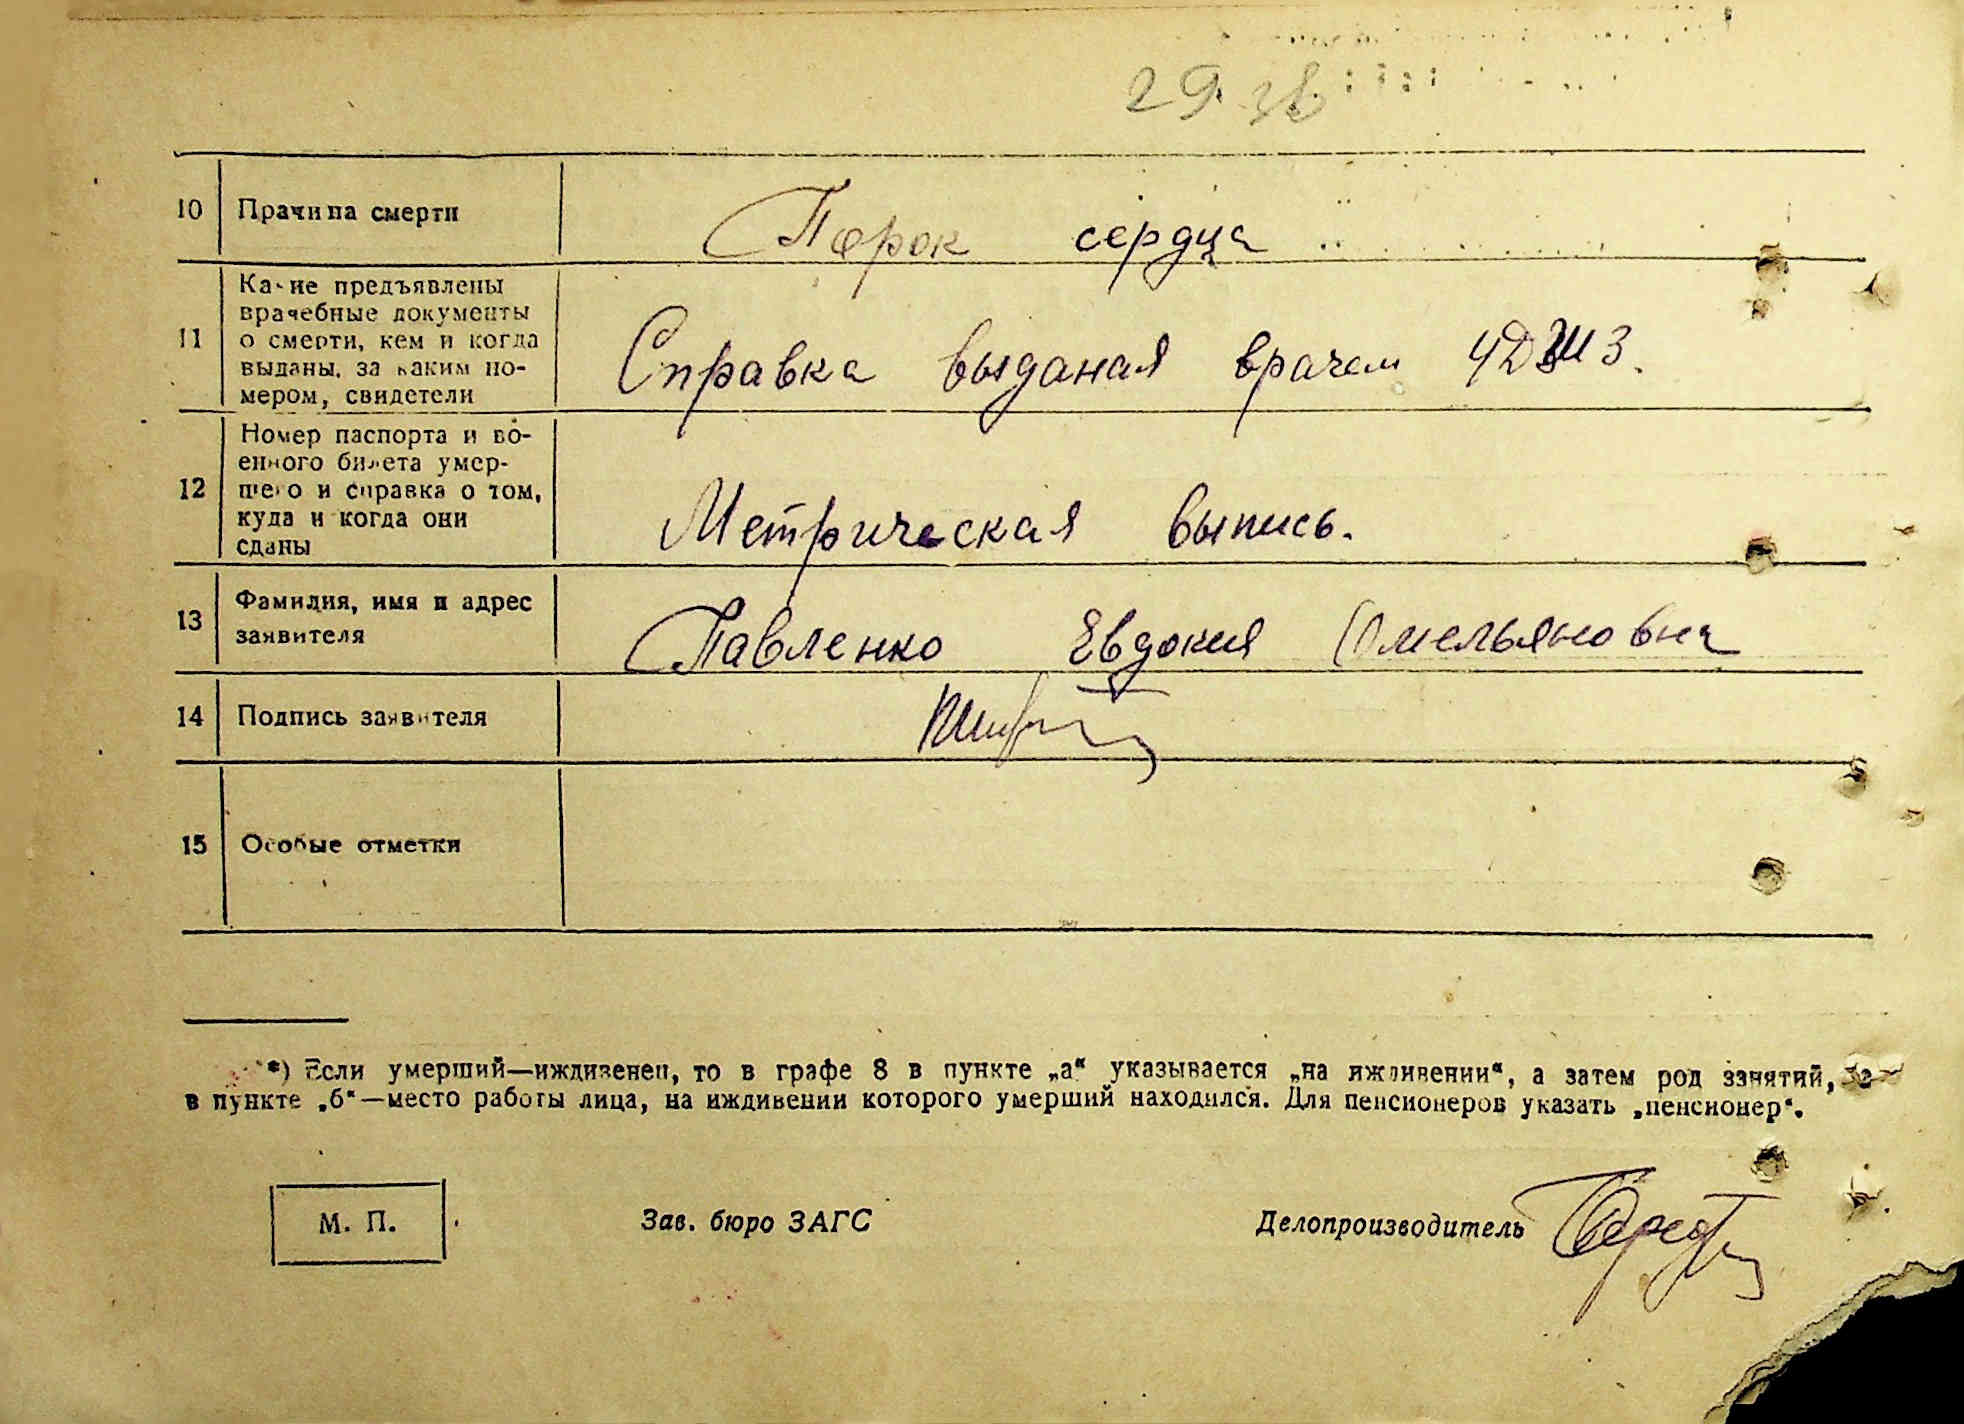 29
10 Причина смерти Порок сердца
11 Какие предъявлены
врачебные документы
о смерти, кем и когда
выданы, за каким но-
мером, свидетели
Справка выданая врачем
12 Номер паспорта и во-
енного билета умер-
шего и справка о том,
куда и когда они
сданы
Метрическая выпись.
13 Фамилия, имя и адрес
заявителя
Павленко Евдокия Омельяновна
14 Подпись заявителя
15 Особые отметки
*) Если умерший—иждивенец, то в графе 8 в пункте „а“ указывается „на иждивении“, а затем род занятий, а
в пункте „б“—место работы лица, на иждивении которого умерший находился. Для пенсионеров указать „пенсионер“.
М. П. Зав. бюро ЗАГС Делопроизводитель